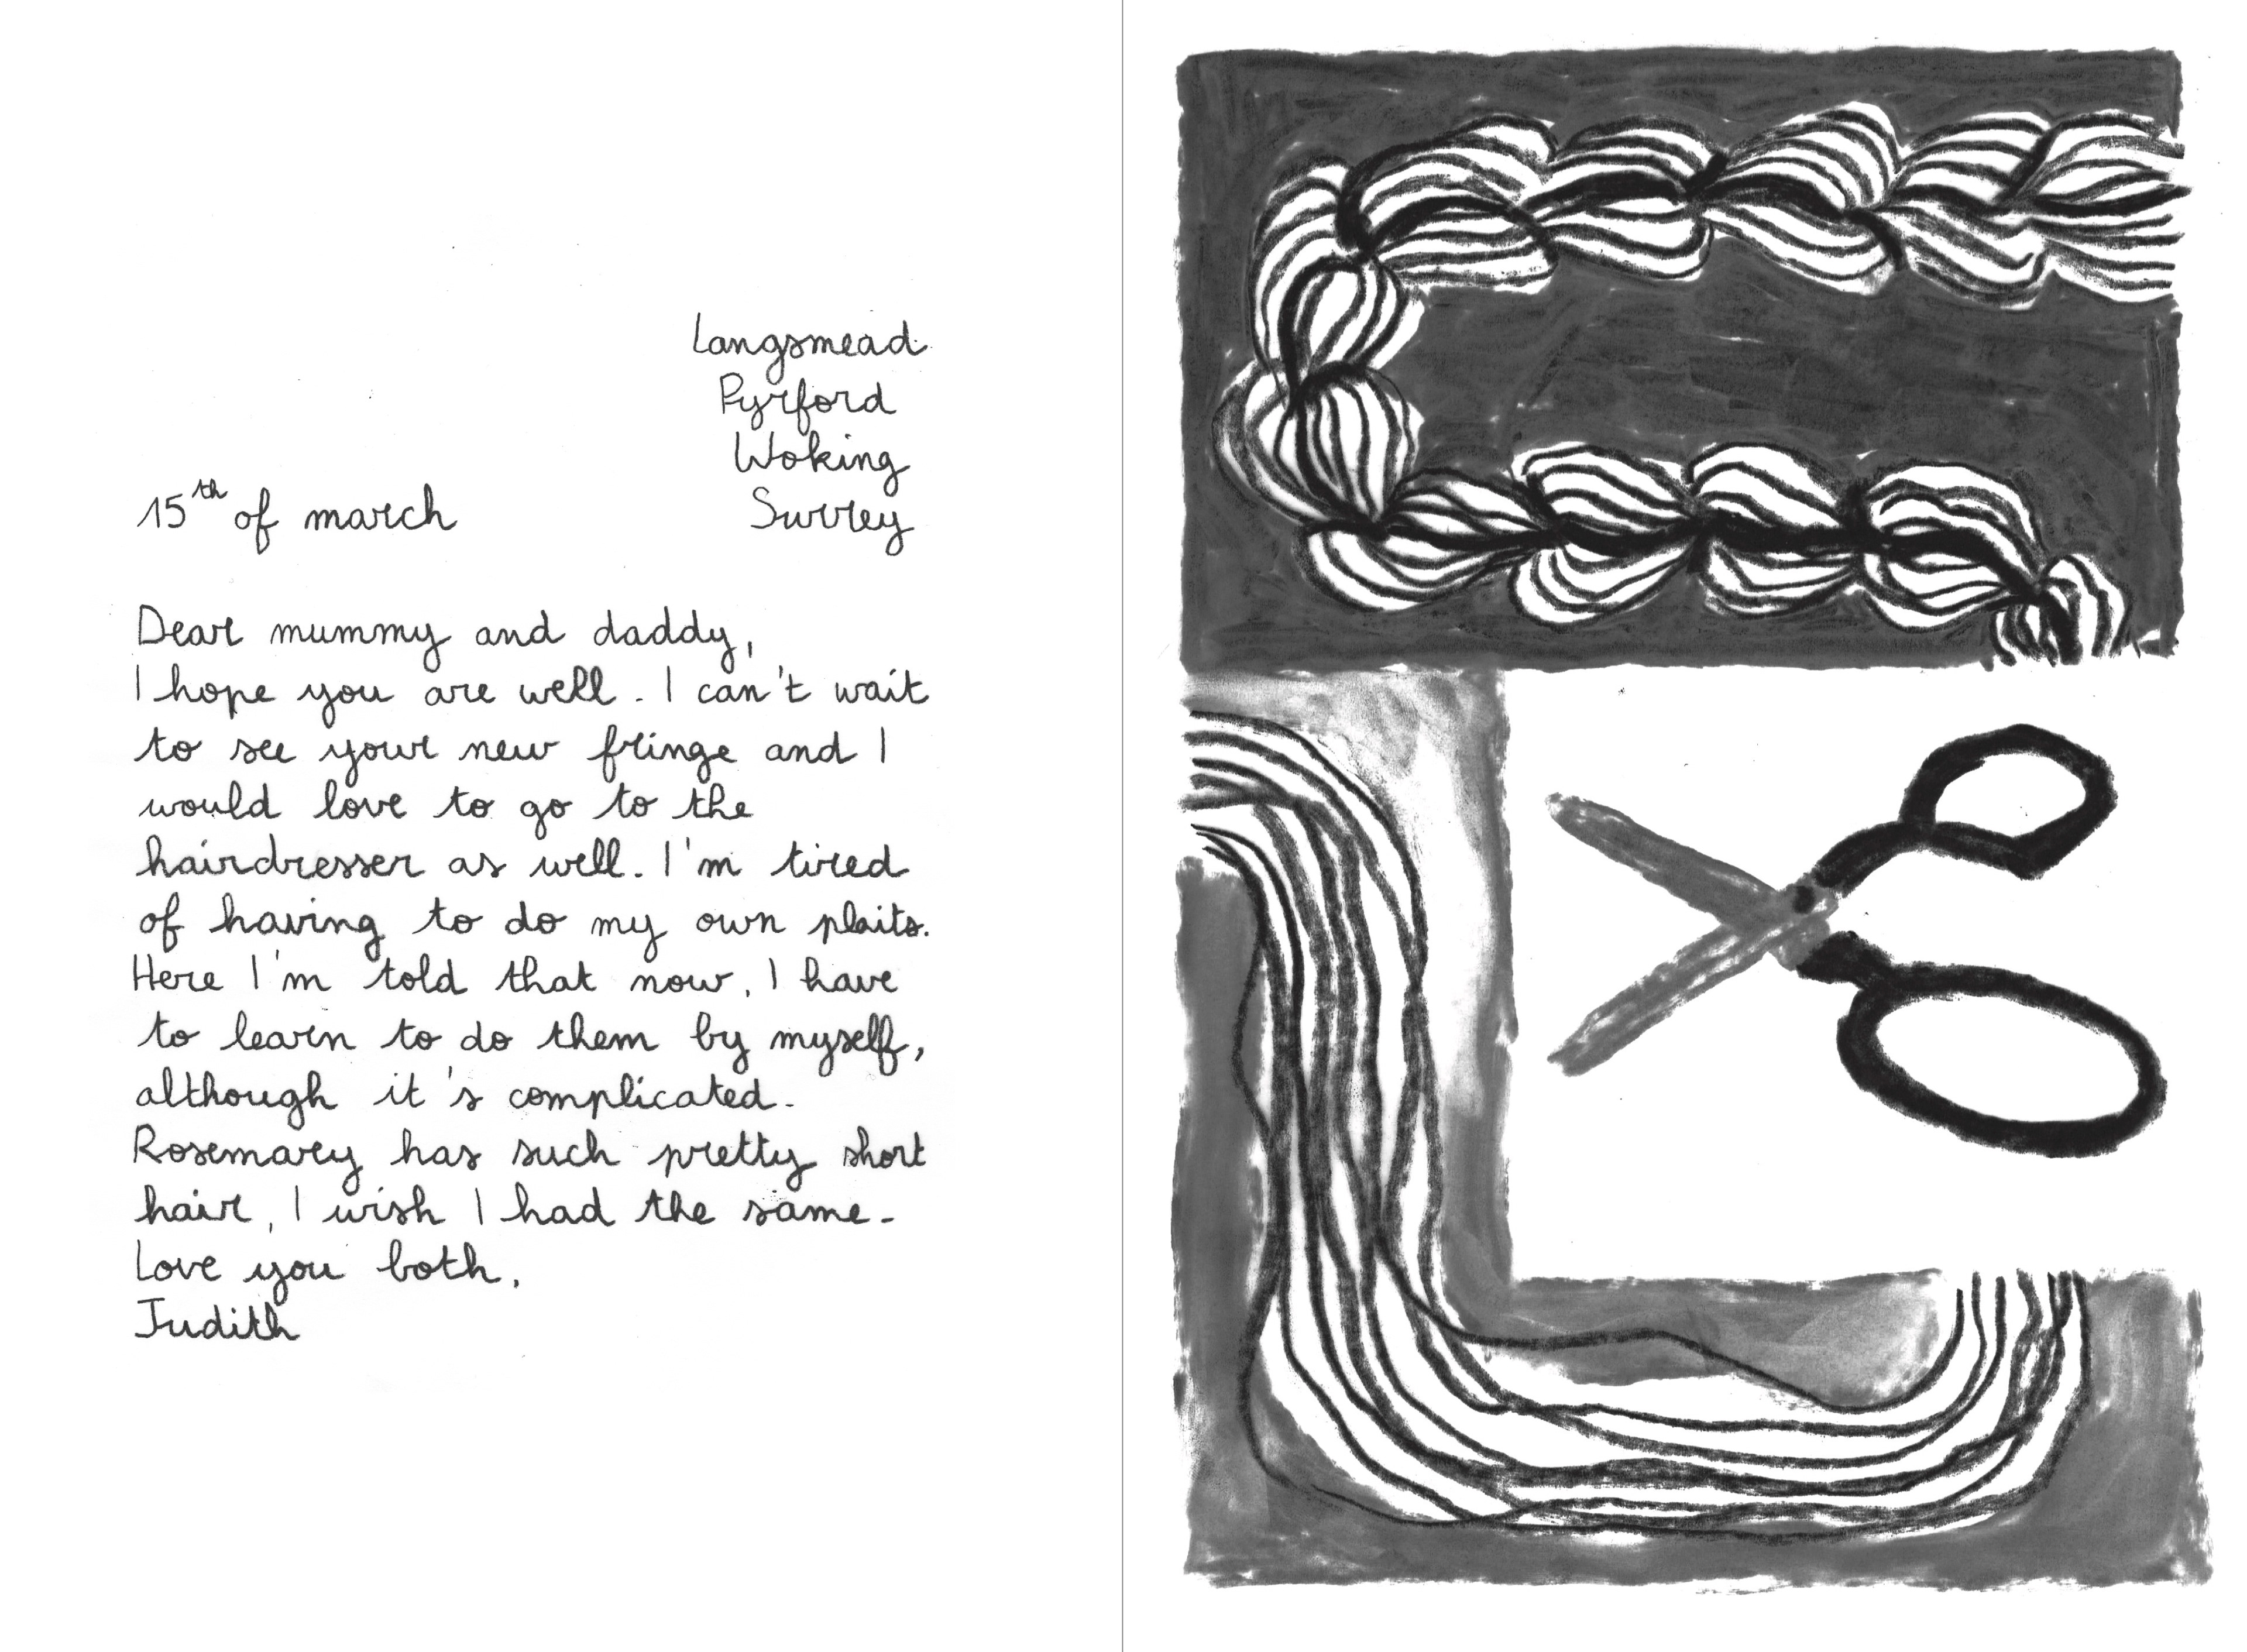 Langsmead
Pyrford
Woking
Surrey
15th of march
Dear mummy and daddy,
I hope you are well. I can't wait
to see your new fringe and I
would love to go to the
hairdresser as well. I'm tired
of having to do my own plaits.
Here I'm told that now, I have
to learn to do them by myself,
although it's complicated.
Rosemary has such pretty short
hair, I wish I had the same.
Love you both,
Judith